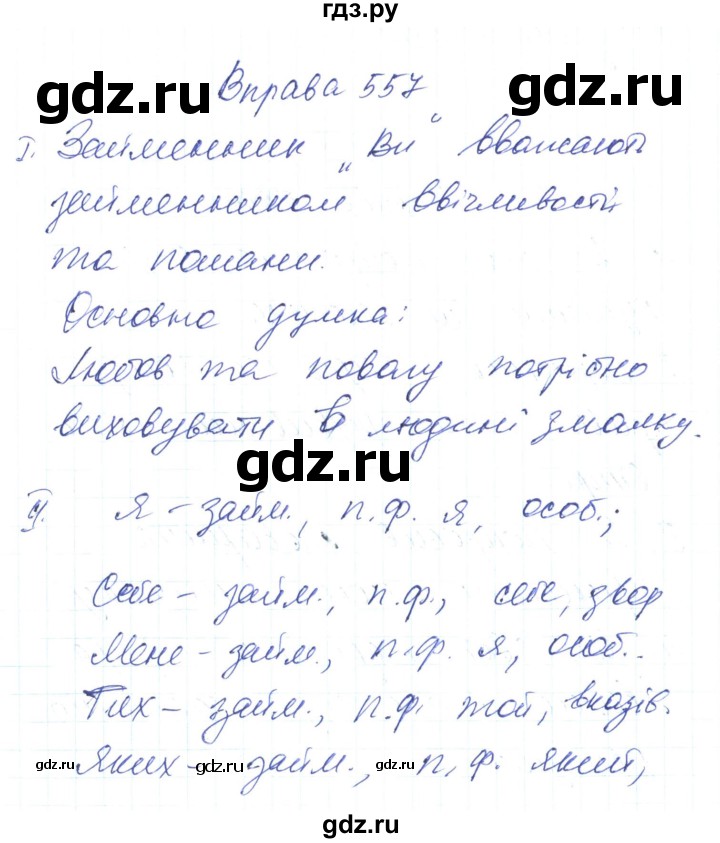 гдз.ру
gdz.ru gdz.ru
Вправа 557
І. Займенник „Ви“ вважають
займенником ввічливості
та пошани.
Основна думка:
Любов та повагу потрібно
виховувати в людині змалку.
gdz.ru
ІІ. Я – займ., п.ф. я, особ.;
Себе – займ., п.ф., себе, звор
Мене – займ., п.ф. я, особ.
Тих – займ., п.ф. той, вказів.
Яких – займ., п.ф. який,
gdz.ru gdz.ru gdz.ru gdz.ru gdz.ru
gdz.ru